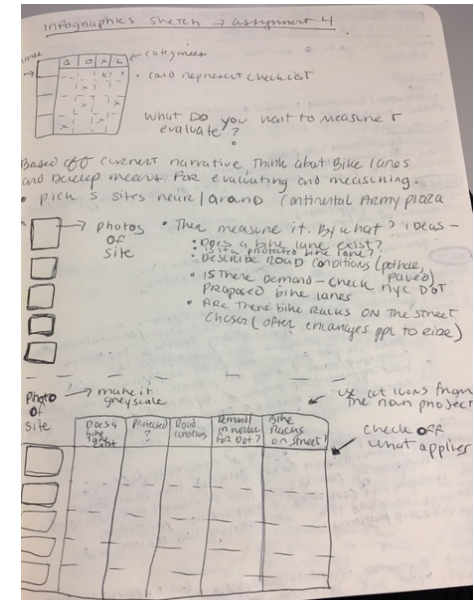 infographics sketch → assignment 4
categories
• could represent checklist
What Do you want to measure &
evaluate?
Based off current narrative, think about Bike lanes
and Develop means for evaluating and measuring.
• pick 5 sites near/around Continental Army plaza
→ photos
of
site
• Then measure it. By what? ideas -
• Does a bike lane exist?
• is it a protected bike lane?
• Describe road conditions (pothole,
paved)
• IS there Demand - check nyc DOT
proposed bike lanes
• Are there bike racks on the street
chosen (often encourages ppl to ride)
Photo
of
site
→ make it
greyscale
use cut icons from
the noun project
Does a
bike
lane
exist
Protected
?
Road
conditions
Demand
for DOT?
Bike
Racks
on street?
check off
what applies